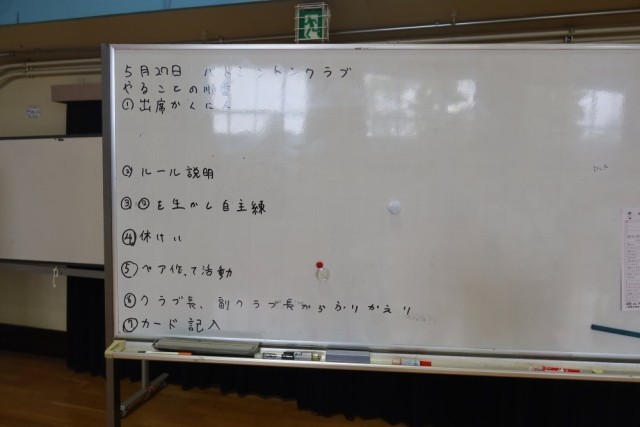 5月27日 バドミントンクラブ
やることの順番
①出席かくにん
②ルール説明
③②を生かし自主練
④休けい
⑤ペア作って活動
⑥クラブ長、副クラブ長からふりかえり
⑦カード記入